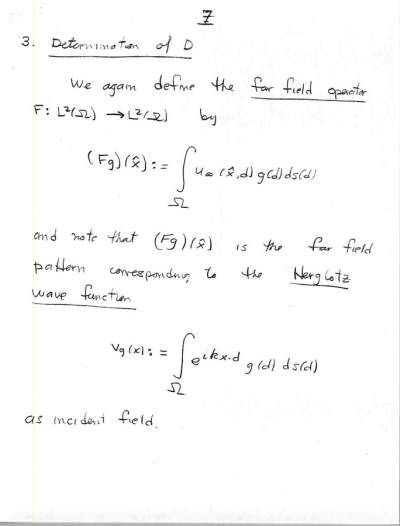 7
3. Determination of D
We again define the far field operator
F: L²(Ω) → L²(Ω) by
(Fg)(x̂) := ∫_Ω u∞(x̂,d) g(d) ds(d)
and note that (Fg)(x̂) is the far field
pattern corresponding to the Herglotz
wave function
Vg(x) := ∫_Ω e^{ikx·d} g(d) ds(d)
as incident field.